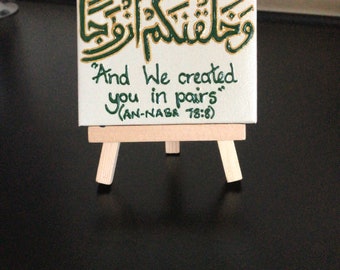 وَخَلَقْنَكُمْ أَزْوَجًا
"And We created
you in pairs"
(AN-NABA 78:8)